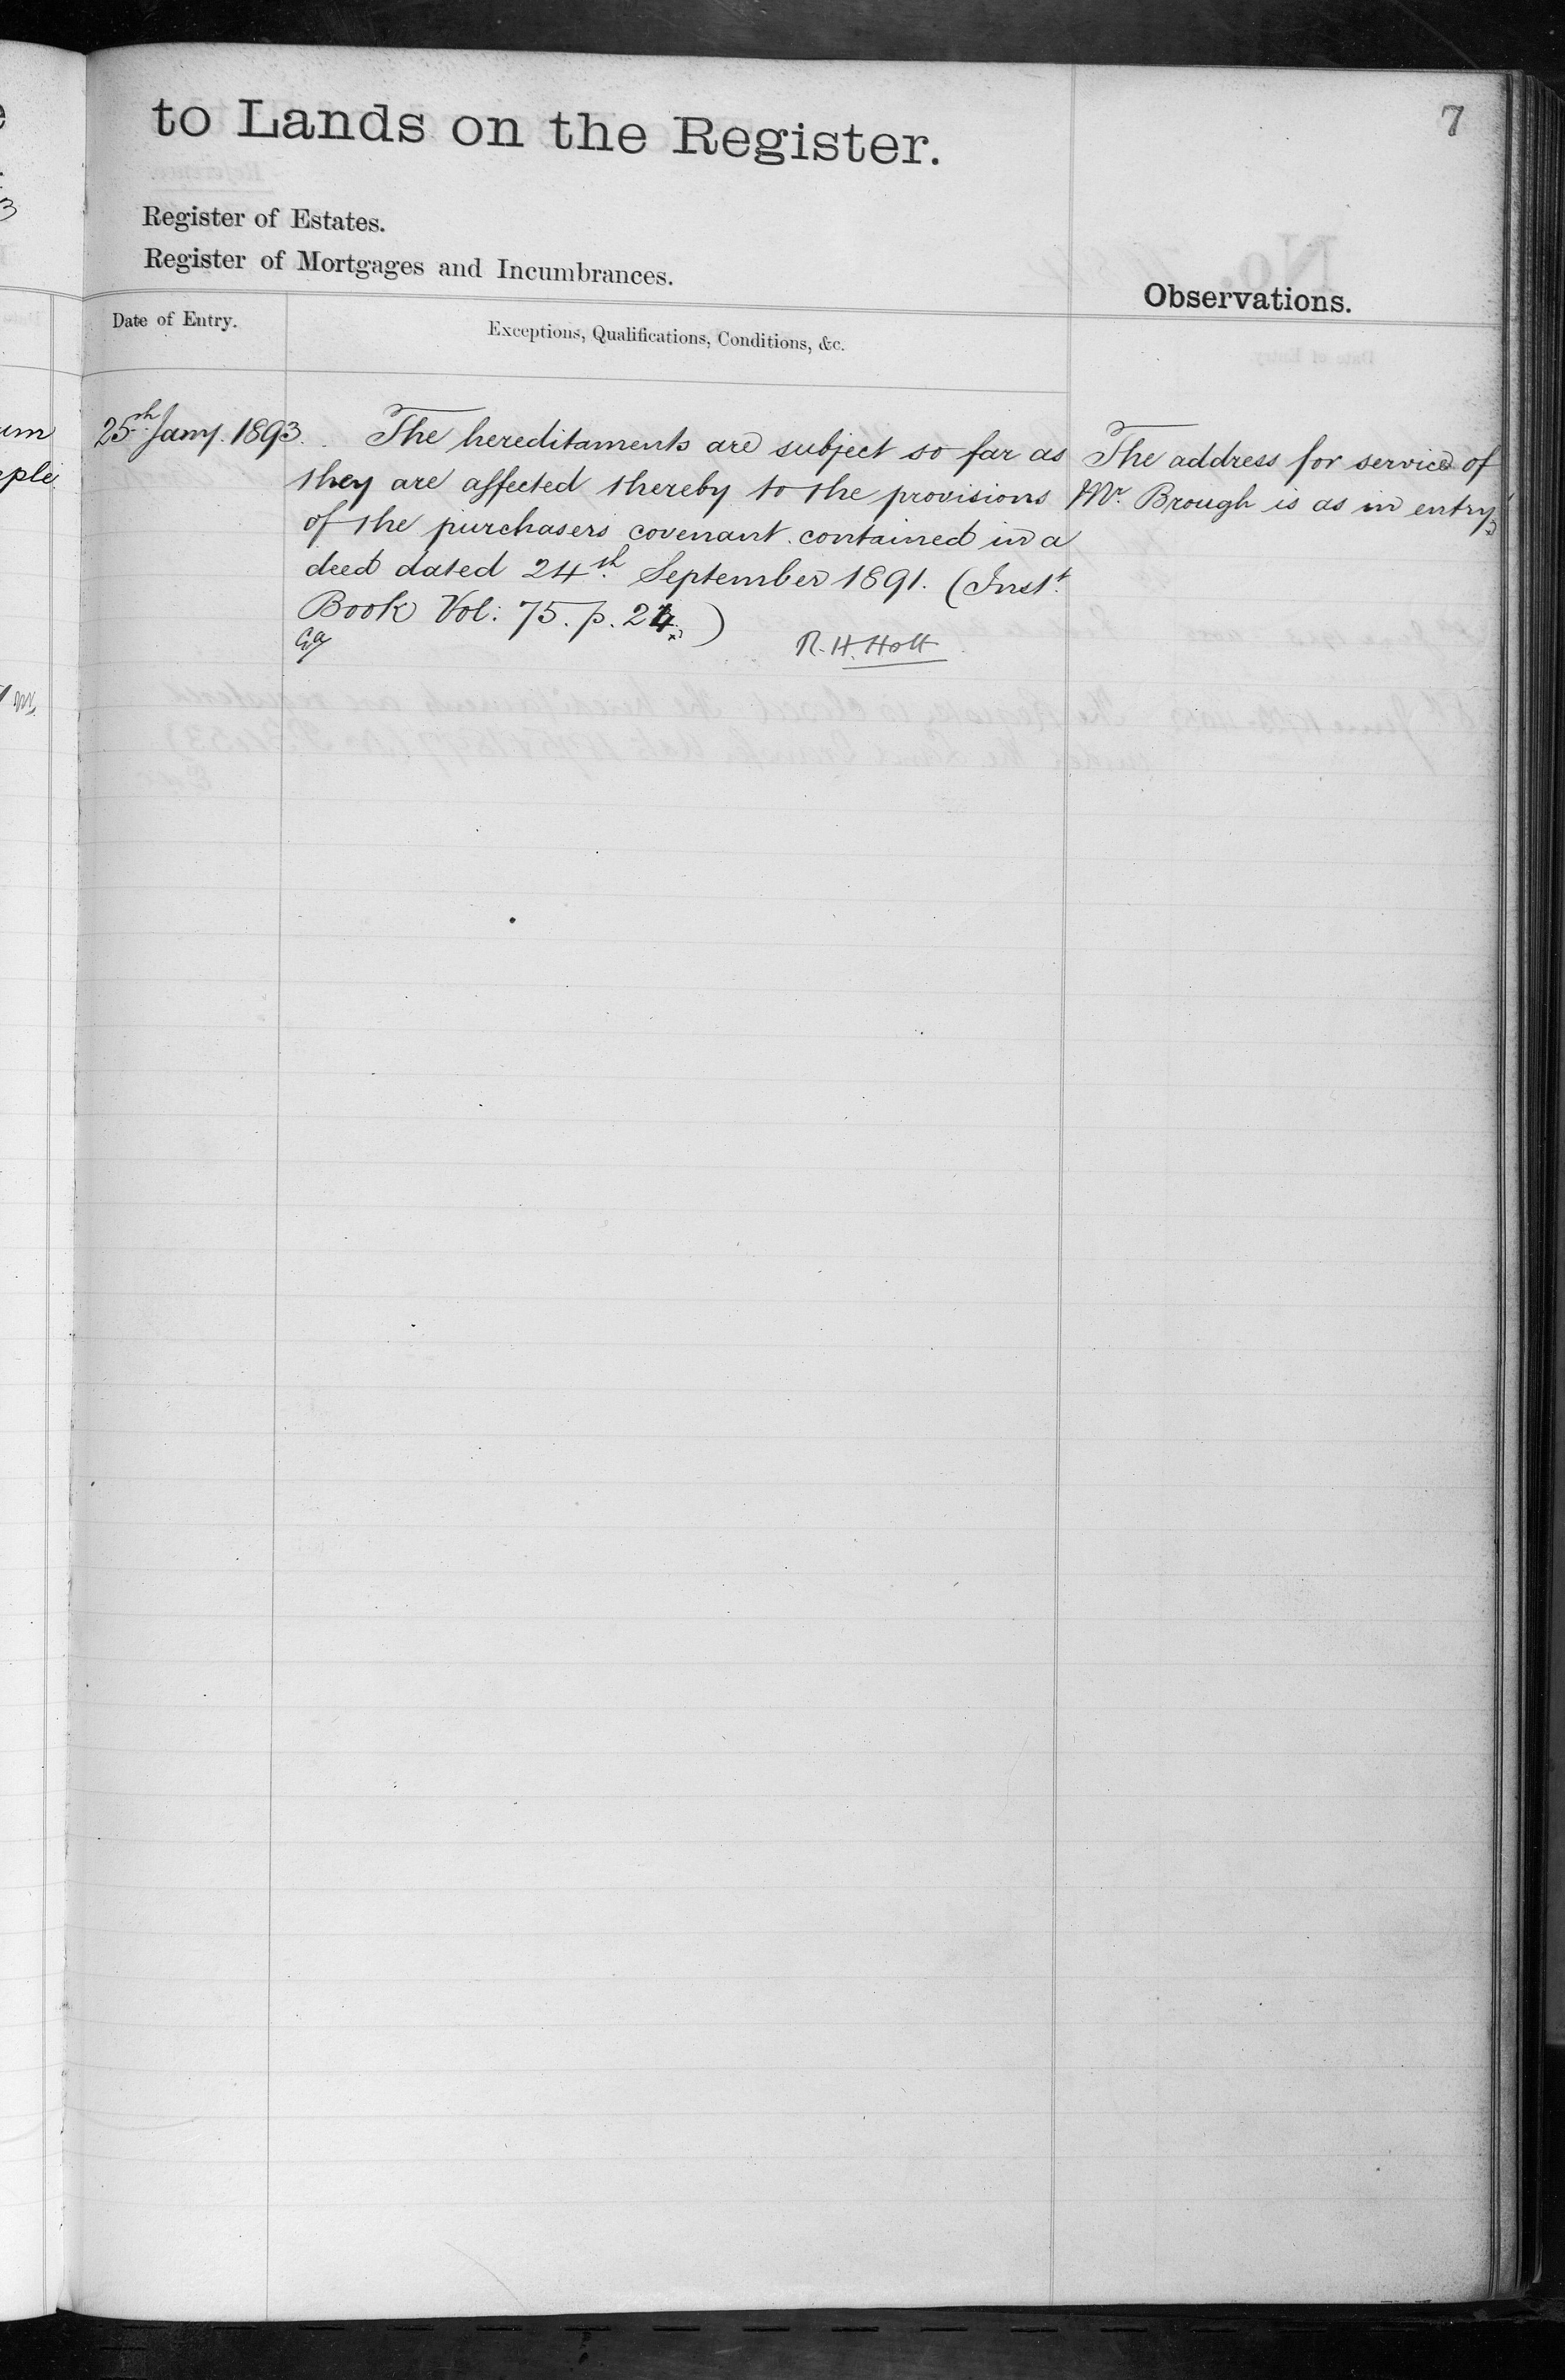 7
to Lands on the Register.
Register of Estates.
Register of Mortgages and Incumbrances.
Observations.
Date of Entry.
Exceptions, Qualifications, Conditions, &c.
25th Jany. 1893.
The hereditaments are subject so far as
they are affected thereby to the provisions
of the purchasers covenant contained in a
deed dated 24th September 1891. (Inst.
Book Vol: 75. p. 24.)
R. H. Holt
The address for service of
Mr. Brough is as in entry